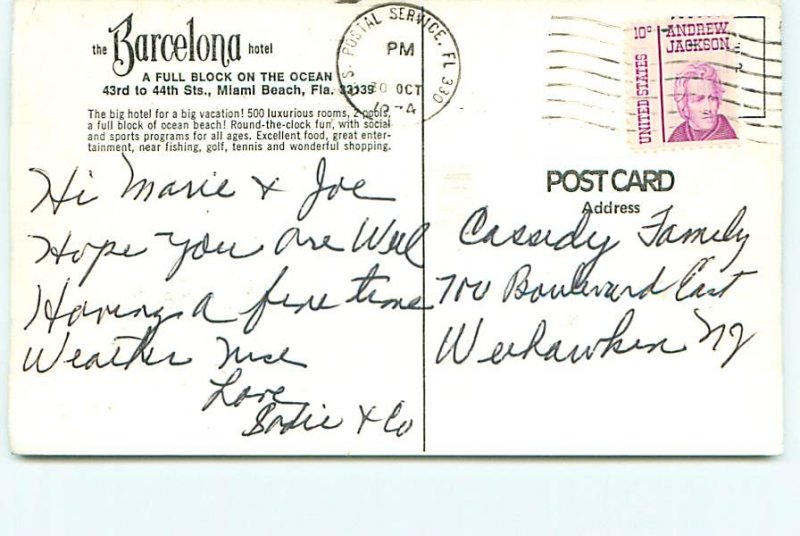 the Barcelona hotel
A FULL BLOCK ON THE OCEAN
43rd to 44th Sts., Miami Beach, Fla. 33139
The big hotel for a big vacation! 500 luxurious rooms, 2 pools,
a full block of ocean beach! Round-the-clock fun, with social
and sports programs for all ages. Excellent food, great enter-
tainment, near fishing, golf, tennis and wonderful shopping.
Hi Marie & Joe
Hope you are Well
Having a fine time
Weather Nice
Love
Sadie & Co
U.S. POSTAL SERVICE, FL 330
PM
OCT
10c ANDREW
JACKSON
UNITED STATES
POST CARD
Address
Cassidy Family
700 Boulevard East
Weehawken NJ